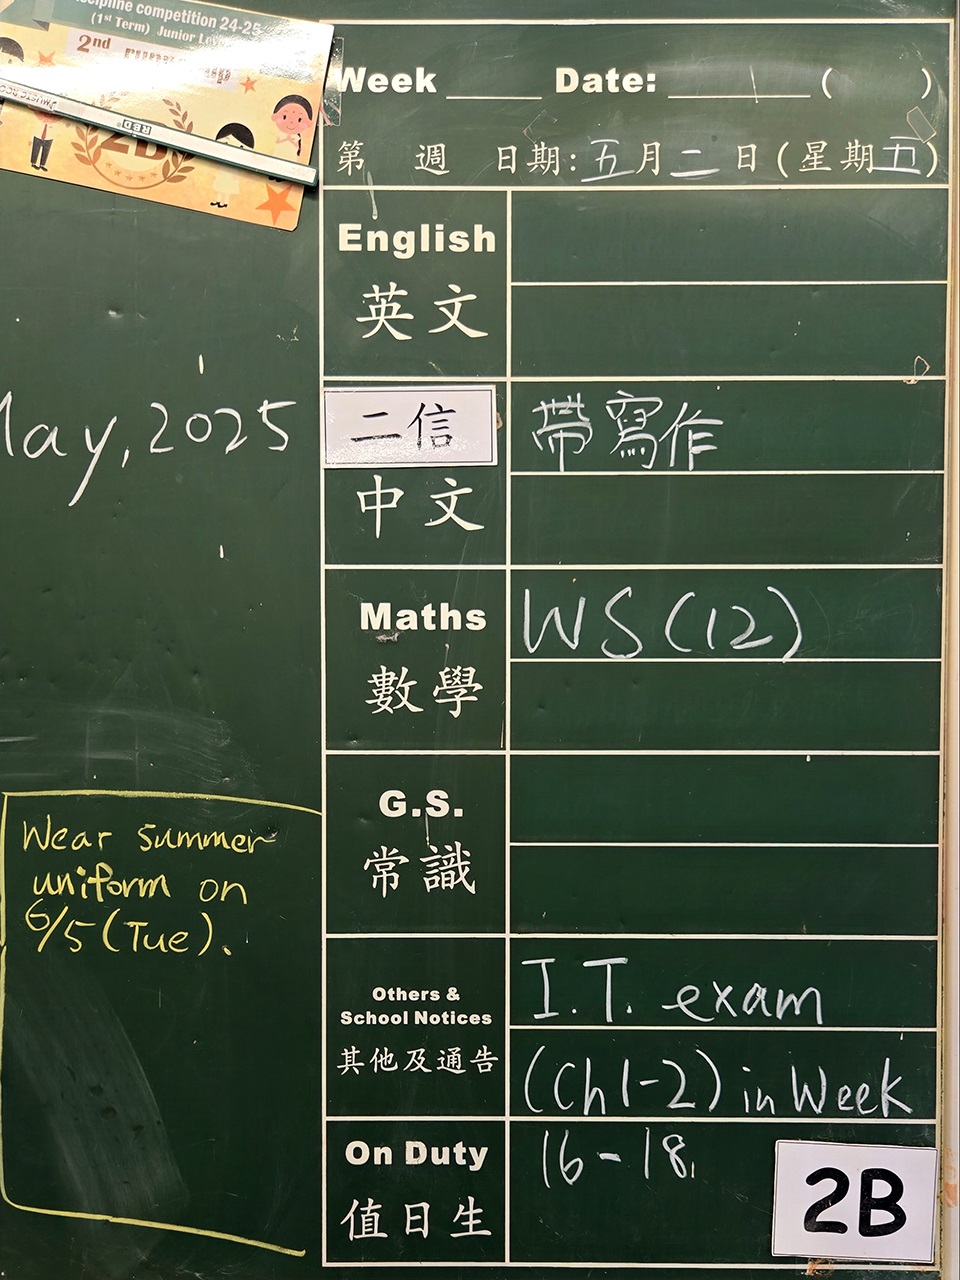 cipline competition 24-25
(1st Term) Junior Lev
2nd
2B
RED
Week Date: ( )
第 週 日期: 五月二日(星期五)
English
英文
May, 2025
二信
帶寫作
中文
Maths
WS(12)
數學
G.S.
常識
Wear summer
uniform on
6/5(Tue).
Others &
School Notices
其他及通告
I.T. exam
(Ch1-2) in Week
16-18.
On Duty
值日生
2B